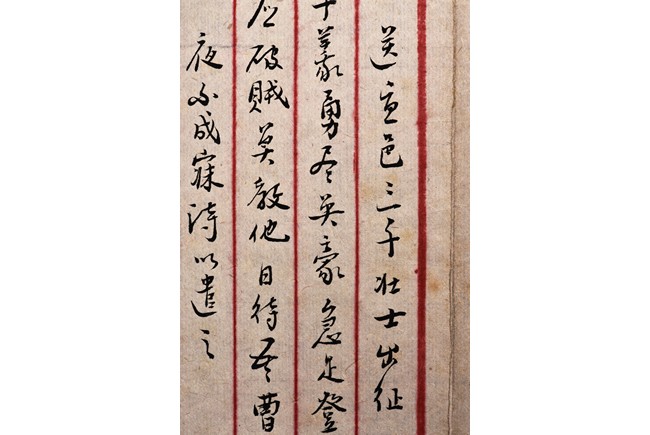 送宣邑三千壮士出征
千義勇尽英豪急足登
应破賊莫教他日待吾曹
夜不成寐诗以遣之